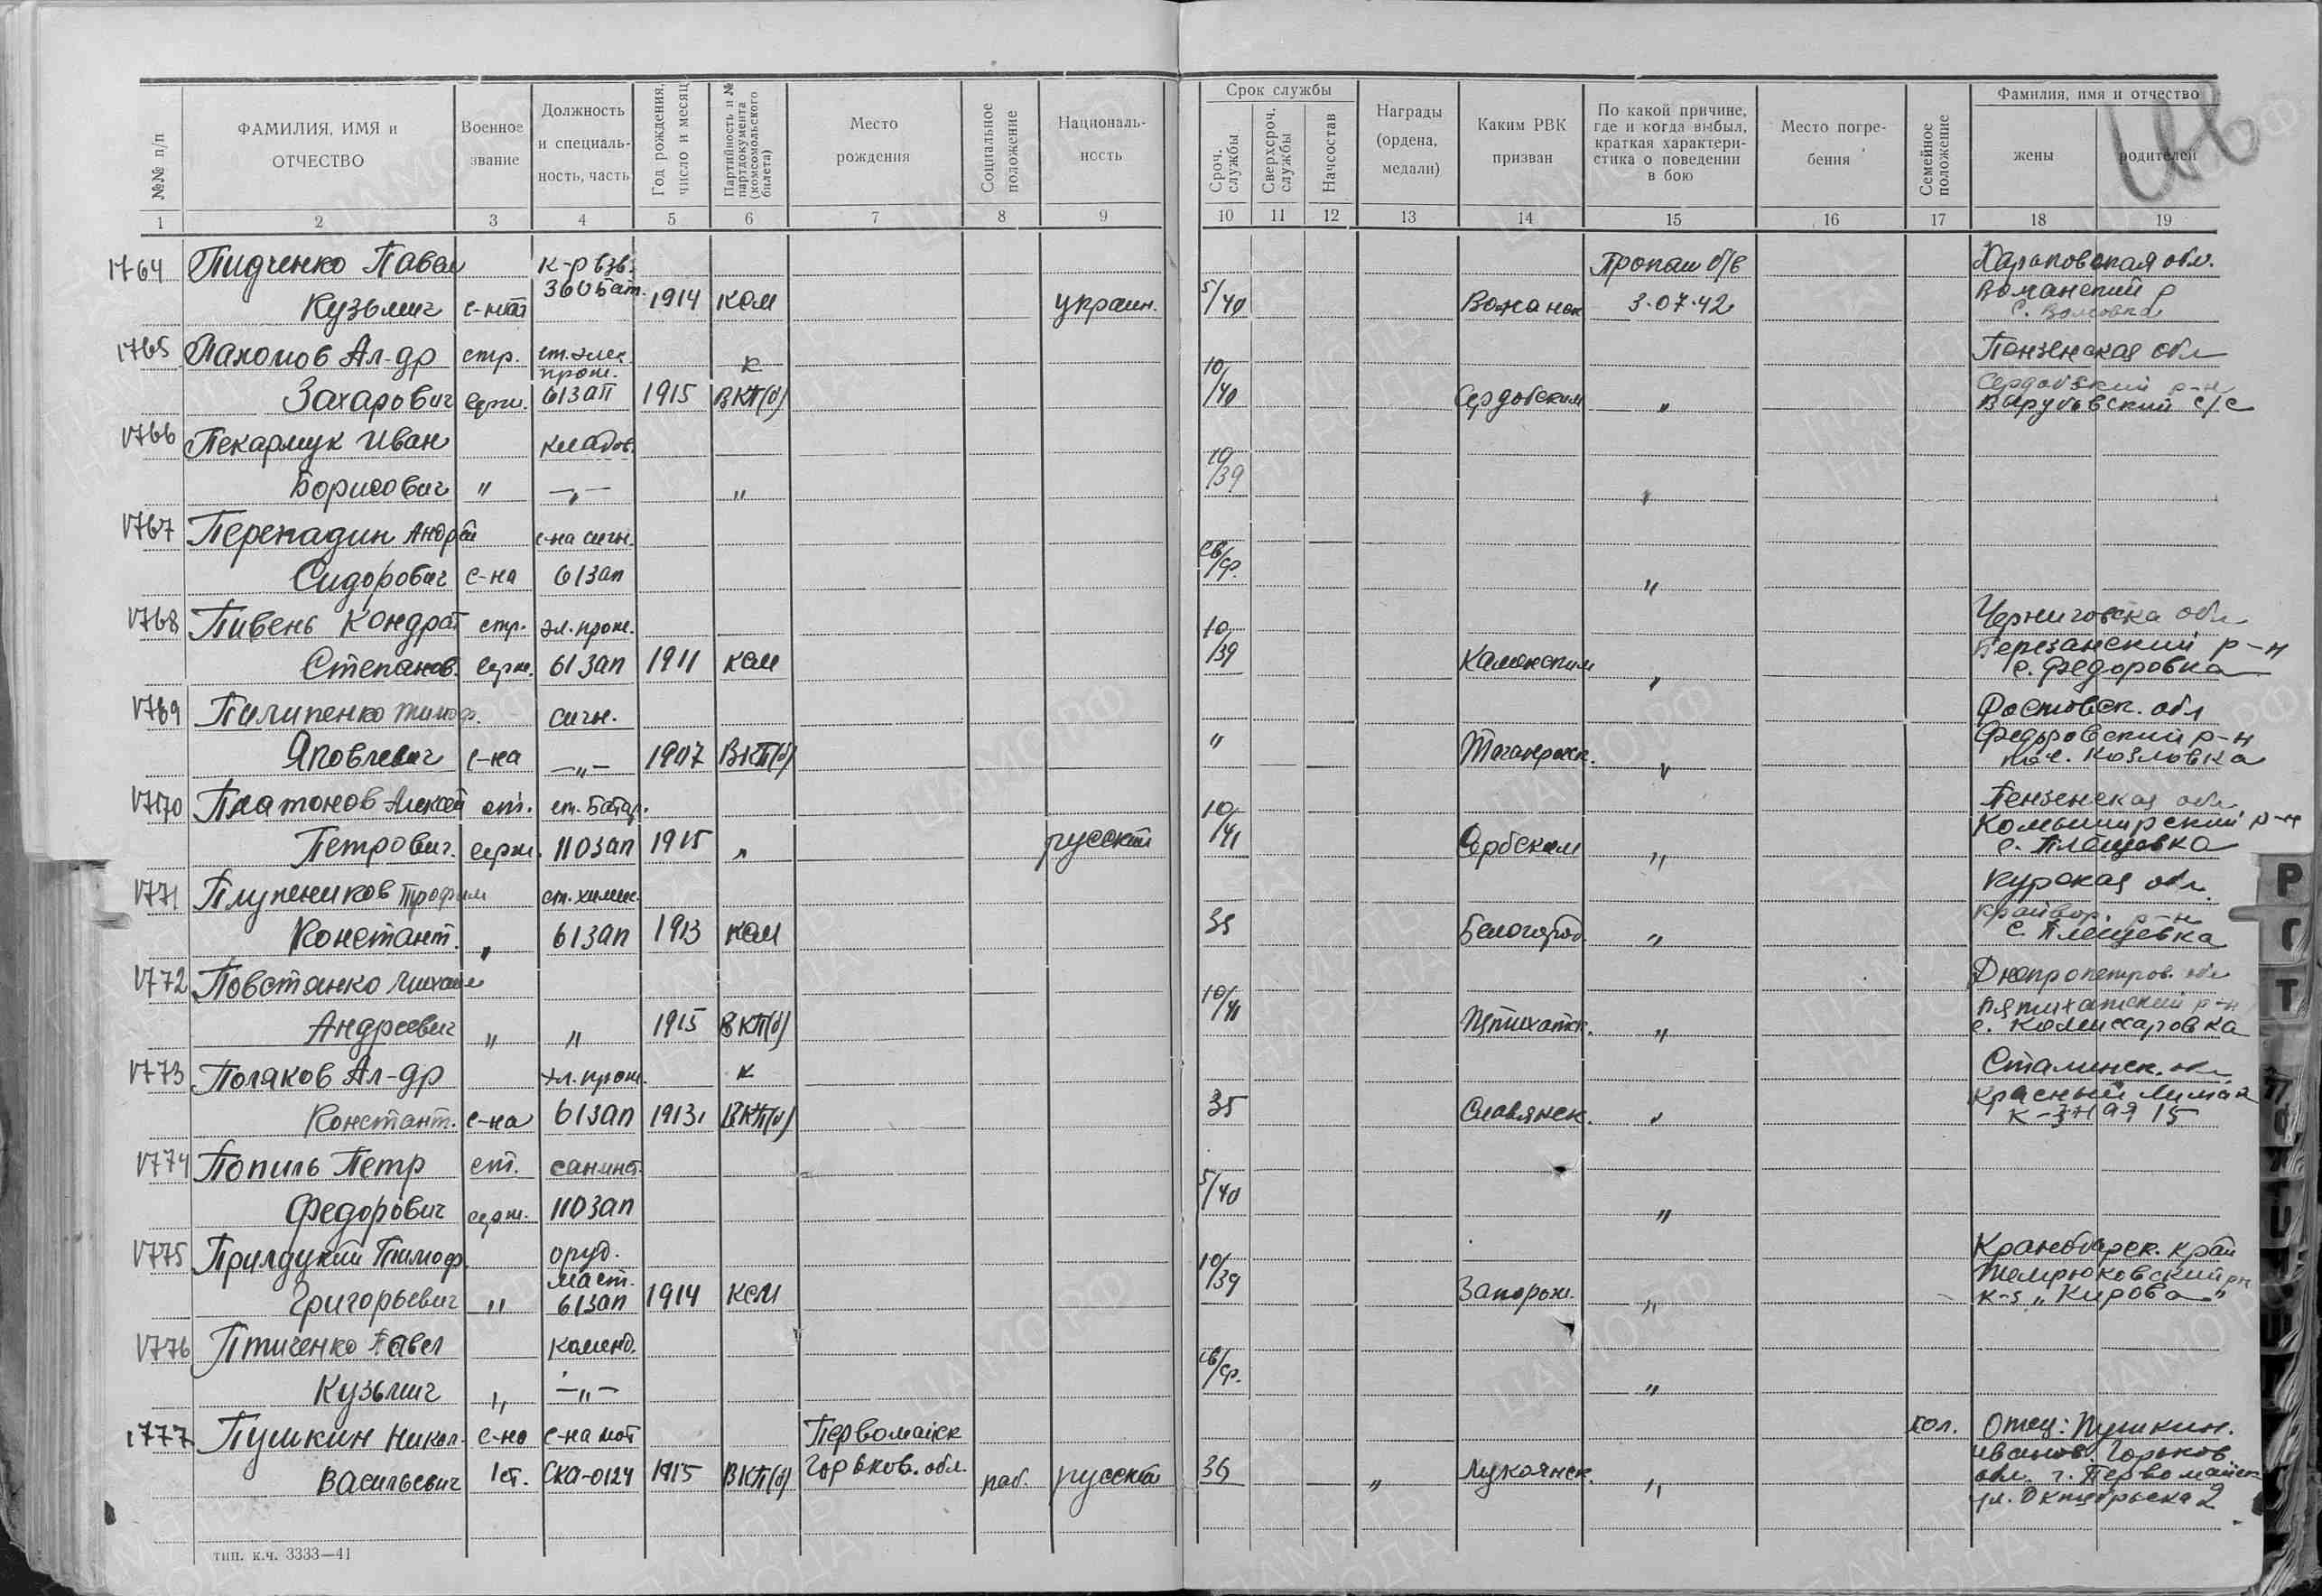 Срок службы
Фамилия, имя и отчество
№№ п/п
ФАМИЛИЯ, ИМЯ и ОТЧЕСТВО
Военное звание
Должность и специальность, часть
Год рождения, число и месяц
Партийность и № партдокумента (комсомольского билета)
Место рождения
Социальное положение
Националь-ность
Сроч. службы
Сверхсроч. службы
Начсостав
Награды (ордена, медали)
Каким РВК призван
По какой причине, где и когда выбыл, краткая характери-стика о поведении в бою
Место погре-бения
Семейное положение
жены
родителей
1 2 3 4 5 6 7 8 9 10 11 12 13 14 15 16 17 18 19
1764 Пидченко Павел к-р взв. Пропал б/в Харьковская обл.
Кузьмич 1914 ком украин. 5/40 3.07.42
1765 Пахомов Ал-др стр. ст. элек. к Пензенская обл
прож.
Захарович серж. 61 зап 1915 ВКП(б) 10/40 Сердобским " Сердобский р-н
Вырубовский с/с
1766 Пекармук Иван кладов.
Борисович " —"— " 10/39 "
1767 Перепадин Андрей с-на сигн.
Сидорович с-на 61 зап св/ср. "
1768 Пивень Кондрат стр. эл. прож. Черниговска обл
Степанов. серж. 61 зап 1911 ком 10/39 Каменским " р-н
с. Федоровка
1769 Пилипенко Тимоф. сигн. Ростовск. обл
Яковлевич с-на —"— 1907 ВКП(б) " Таганрогск. " Федоровский р-н
пос. Козловка
1770 Платонов Алексей ст. ст. батар. Пензенская обл
Петрович. серж. 110 зап 1915 " русский 10/41 " р-н
1771 Трофим ст. химик. Курская обл.
Констант. " 61 зап 1913 ком 35 Белогород. " Крайвор. р-н
с.
1772 Повстянко Михаил Днепропетров. обл
Андреевич " " 1915 ВКП(б) 10/41 Пятихатск. " Пятихатский р-н
с. Комиссаровка
1773 Поляков Ал-др эл. прож. к Сталинск. обл
Констант. с-на 61 зап 1913 ВКП(б) 35 Славянск. " Красный Лиман
15
1774 Попиль Петр ст. санинст.
Федорович серж. 110 зап 5/40 "
1775 Тимоф. оруд. край
маст.
Григорьевич " 61 зап 1914 ксм 10/39 Запорож. " Темрюковский рн
к-з „Кирова"
1776 Птиченко Павел коменд.
Кузьмич " —"— св/ср. "
1777 Пушкин Никол. с-на с-на мот Первомайск хол. Отец: Пушкин.
Васильевич 1 ст. СКА-0124 1915 ВКП(б) Горьков. обл. раб. русский 36 " Лукоянск. " Иванов. Горьков
обл. г. Первомайск
ул. Октябрьска 2
тип. к.ч. 3333—41
Р
С
Т